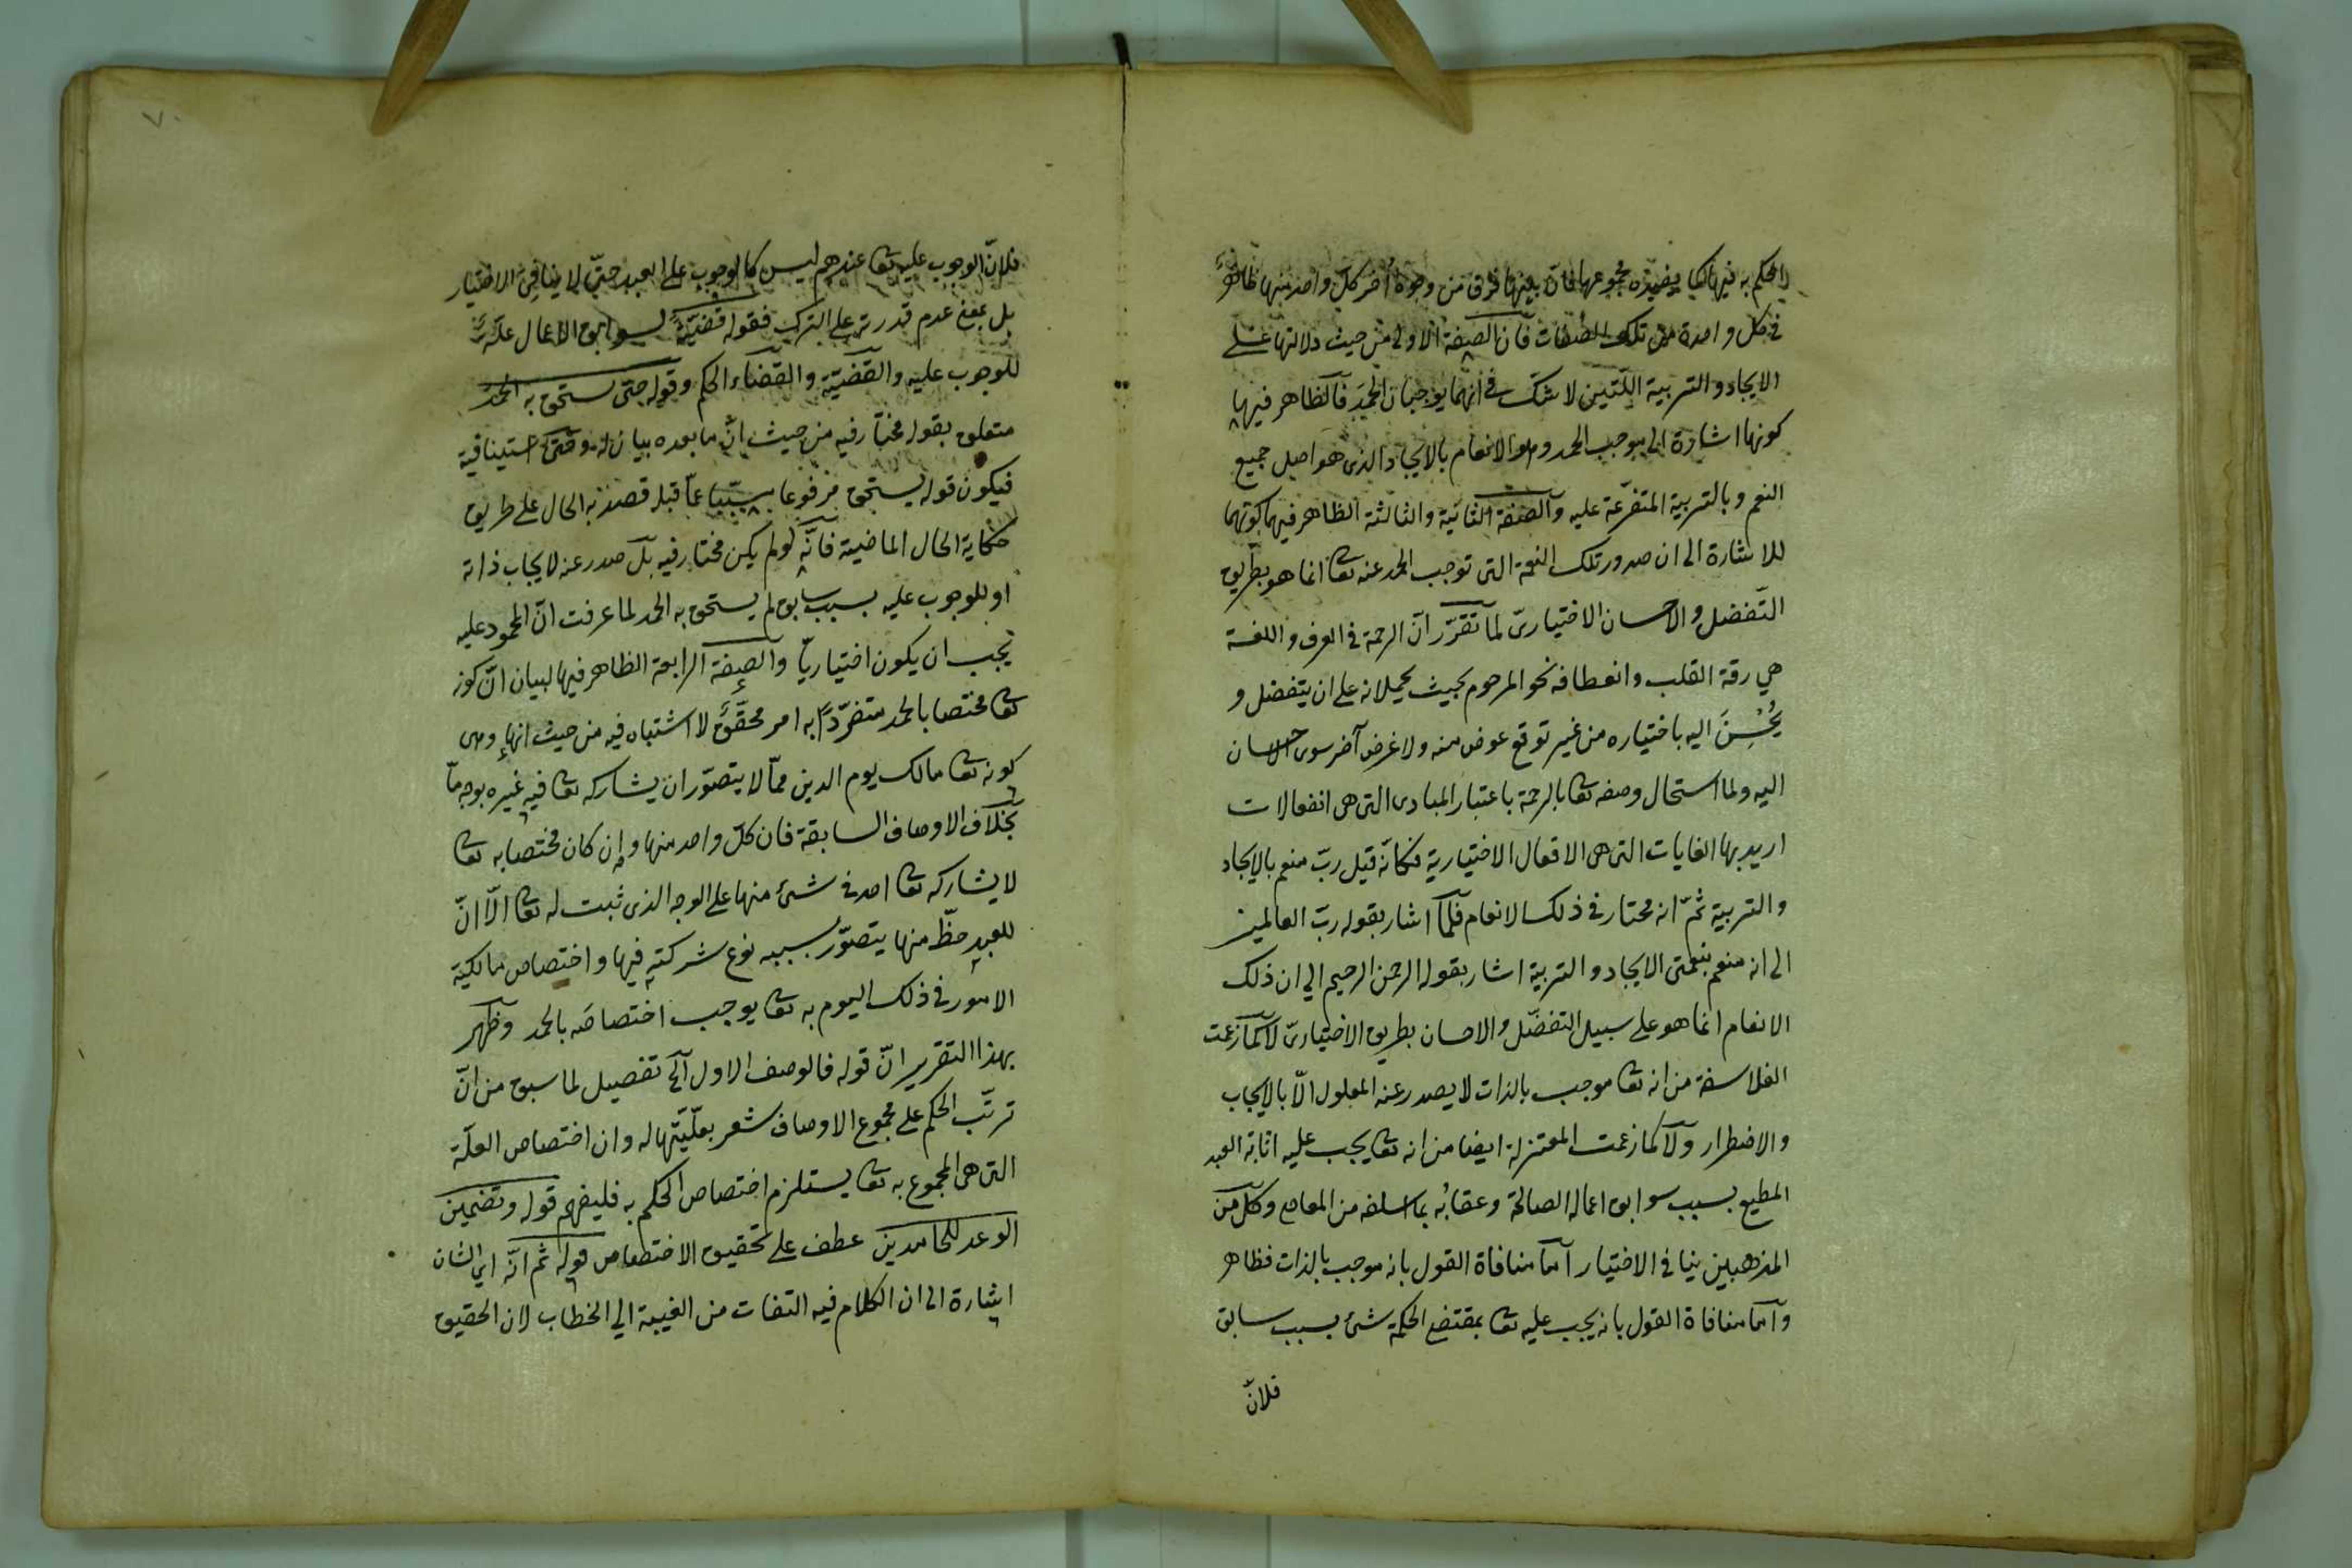 الحكم به فيها كما يفيده مجموعها فان بينها فرق من وجوه أخر كل واحد منها ظاهر
في كل واحدة من تلك الصفات فان الصفة الاولى من حيث دلالتها على
الايجاد والتربية اللتين لا شك في انهما يوجبان الحمد فالظاهر فيها
كونها اشارة الى موجب الحمد وهو الانعام بالايجاد الذى هو اصل جميع
النعم وبالتربية المتفرعة عليه والصفة الثانية والثالثة الظاهر فيهما كونهما
للاشارة الى ان صدور تلك النعمة التى توجب الحمد عنه تعا انما هو بطريق
التفضل والاحسان الاختيارىّ لما تقرّر انّ الرحمة في العرف واللغة
هي رقة القلب وانعطافه نحو المرحوم بحيث يحملانه على ان يتفضل و
يُحْسِنَ اليه باختياره من غير توقع عوض منه ولا غرض آخر سوى الاحسان
اليه ولما استحال وصفه تعا بالرحمة باعتبار المبادى التى هى انفعالات
اريد بها الغايات التى هى الافعال الاختيارية فكانّه قيل ربّ منعم بالايجاد
والتربية ثمّ انه مختار في ذلك الانعام فلمّا اشار بقوله ربّ العالمين
الى انه منعم بنعمتى الايجاد والتربية اشار بقوله الرحمن الرحيم الي ان ذلك
الانعام انما هو على سبيل التفضّل والاحسان بطريق الاختيارىّ لا كما زعمت
الفلاسفة من انه تعا موجب بالذات لا يصدر عنه المعلول الّا بالايجاب
والاضطرار ولا كما زعمت المعتزلة ايضا من انه تعا يجب عليه اثابة العبد
المطيع بسبب سوابق اعماله الصالحة وعقابُه بما اسلفه من المعاصى وكلّ من
المذهبين ينافى الاختيار امّا منافاة القول بانه موجب بالذات فظاهر
وامّا منافاة القول بانه يجب عليه تعا بمقتضى الحكمة شئ بسبب سابق
فلانّ
فلانّ الوجوب عليه تعا عندهم ليس كالوجوب على العبد حتّى لا ينافى الاختيار
بل بمعنى عدم قدرته على الترك فقوله قضيّةً لسوابق الاعمال علّة
للوجوب عليه والقضيّة والقضاء الحكم وقوله حتى يستحق به الحمد
متعلق بقوله مختار فيه من حيث انّ ما بعده بيان له وحتى استينافية
فيكون قوله يستحق مرفوعا مسبّبا عمّا قبله قصد به الحال على طريق
حكاية الحال الماضية فانّه لو لم يكن مختارا فيه بل صدر عنه لايجاب ذاته
او للوجوب عليه بسبب سابق لم يستحق به الحمد لما عرفت انّ المحمود عليه
يجب ان يكون اختياريّا والصفة الرابعة الظاهر فيها لبيان انّ كونه
تعا مختصا بالحمد متفرّدًا به امر محقّق لا اشتباه فيه من حيث انها وهى
كونه تعا مالك يوم الدين ممّا لا يتصوّر ان يشاركه تعا فيه غيره بوجه ما
بخلاف الاوصاف السابقة فان كلّ واحد منها وان كان مختصا به تعا
لا يشاركه تعا احد في شئ منها على الوجه الذى ثبت له تعا الّا انّ
للعبد حظّ منها يتصوّر بسببه نوع شركته فيها واختصاص مالكية
الامور في ذلك اليوم به تعا يوجب اختصاصَه بالحمد وظهر
بهذا التقرير انّ قوله فالوصف الاول الخ تفصيل لما سبق من انّ
ترتّب الحكم على مجموع الاوصاف يشعر بعلّيّتها له وان اختصاص العلّة
التى هى المجموع به تعا يستلزم اختصاص الحكم به فليفهم قوله وتضمين
الوعد للحامدين عطف على تحقيق الاختصاص قوله ثم انّه اى الشان
اشارة الى ان الكلام فيه التفات من الغيبة الي الخطاب لان الحقيق